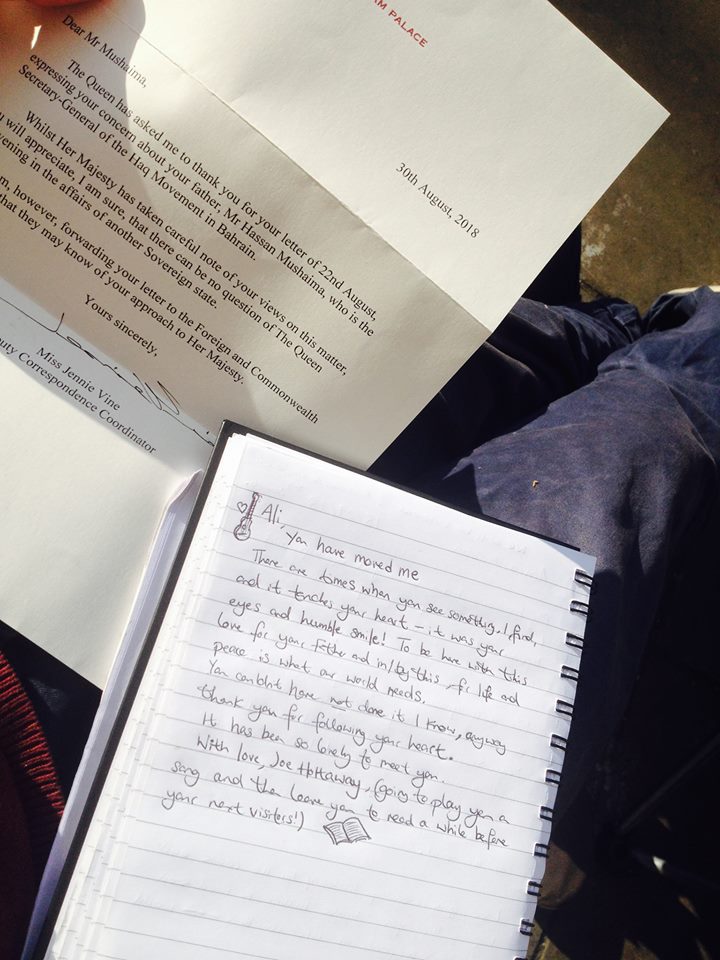 AM PALACE
30th August, 2018
Dear Mr Mushaima,
The Queen has asked me to thank you for your letter of 22nd August,
expressing your concern about your father, Mr Hassan Mushaima, who is the
Secretary-General of the Haq Movement in Bahrain.
Whilst Her Majesty has taken careful note of your views on this matter,
u will appreciate, I am sure, that there can be no question of The Queen
vening in the affairs of another Sovereign state.
m, however, forwarding your letter to the Foreign and Commonwealth
that they may know of your approach to Her Majesty.
Yours sincerely,
Miss Jennie Vine
uty Correspondence Coordinator
Ali,
You have moved me
There are times when you see something, I find,
and it touches your heart – it was your
eyes and humble smile! To be here with this
love for your Father and in/by this, for life and
peace is what our world needs.
You couldn't have not done it I know, anyway
thank you for following your heart.
It has been so lovely to meet you.
With love, Joe Hottaway, (going to play you a
song and then leave you to read a while before
your next visitors!)